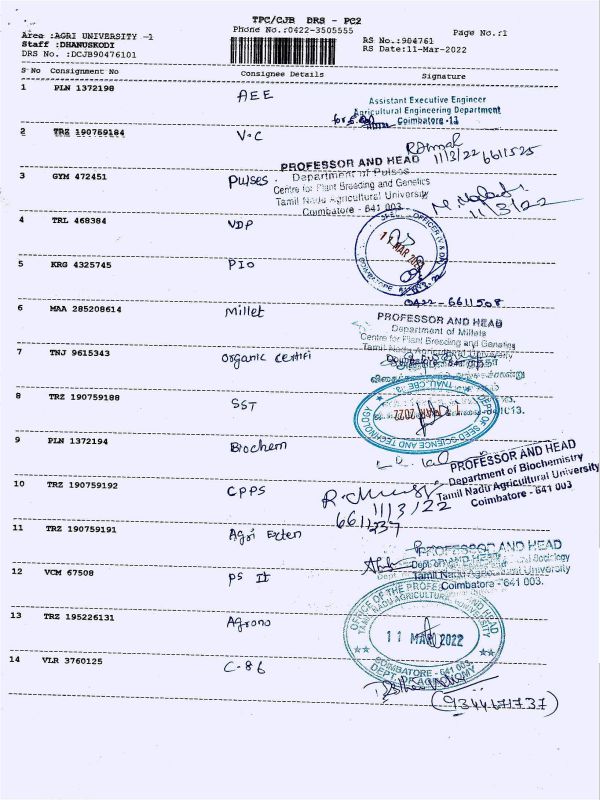 TPC/CJB DRS - PC2
Area :AGRI UNIVERSITY -1
Phone No.:0422-3505555
Page No.:1
Staff :DHANUSKODI
RS No.:904761
DRS No. :DCJB90476101
RS Date:11-Mar-2022
S No Consignment No Consignee Details Signature
1 PLN 1372198 AEE
Assistant Executive Engineer
Agricultural Engineering Department
Coimbatore -13
2 TRZ 190759184 V.C
11/3/22 6611525
PROFESSOR AND HEAD
Department of Pulses
3 GYM 472451 Pulses.
Centre for Plant Breeding and Genetics
Tamil Nadu Agricultural University
Coimbatore - 641 003
11/3/22
4 TRL 468384 VDP
5 KRG 4325745 PIO
0422-6611508
6 MAA 285208614 Millet
PROFESSOR AND HEAD
Department of Millets
Centre for Plant Breeding and Genetics
Tamil Nadu Agricultural University
7 TNJ 9615343 Organic certifi
8 TRZ 190759188 SST
DEPT OF SEED SCIENCE AND TECHNOLOGY
TNAU, CBE
MAR 2022
9 PLN 1372194 Biochem
PROFESSOR AND HEAD
Department of Biochemistry
Tamil Nadu Agricultural University
Coimbatore - 641 003
10 TRZ 190759192 CPPS
11/3/22
6611237
11 TRZ 190759191 Agri Exten
PROFESSOR AND HEAD
12 VCM 67508 PS II
Tamil Nadu Agricultural University
Coimbatore - 641 003.
13 TRZ 195226131 Agrono
OFFICE OF THE PROFESSOR AND HEAD
TAMIL NADU AGRICULTURAL UNIVERSITY
11 MAR 2022
COIMBATORE - 641 003.
DEPT. OF AGRONOMY
14 VLR 3760125 C-86
(9344671737)